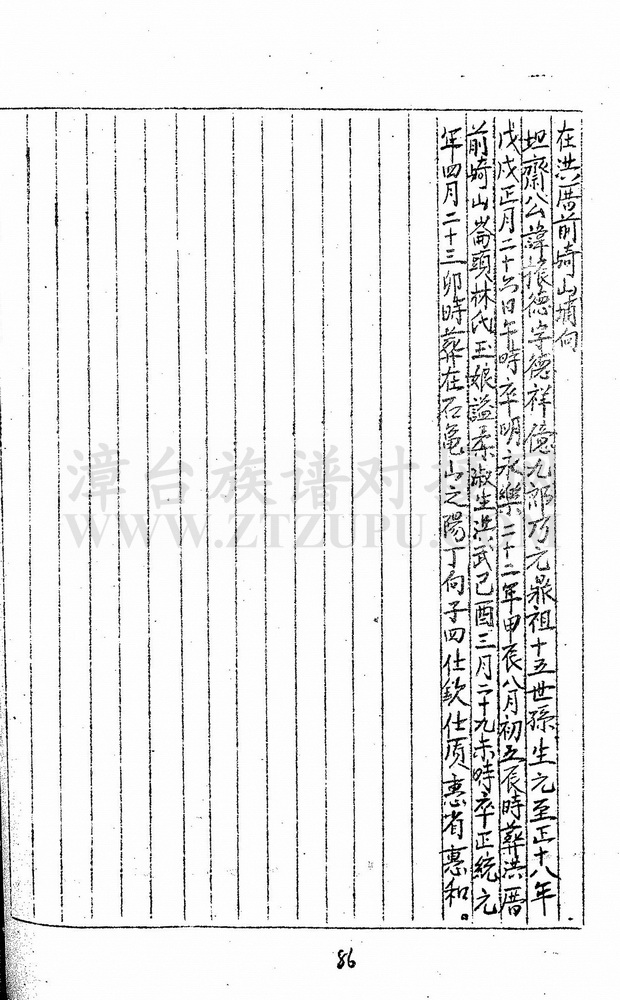 在洪厝前崎山靖向
坦齋公諱振德字德祥億九郎乃元鼎祖十五世孫生元至正十八年
戊戌正月二十六日午時卒明永樂二十二年甲辰八月初五辰時葬洪厝
前崎山崙頭林氏玉娘謚柔淑生洪武己酉三月二十九未時卒正統元
年四月二十三卯時葬在石龜山之陽丁向子四仕欽仕质惠省惠和。
漳台族谱对
WWW.ZTZUPU.
86